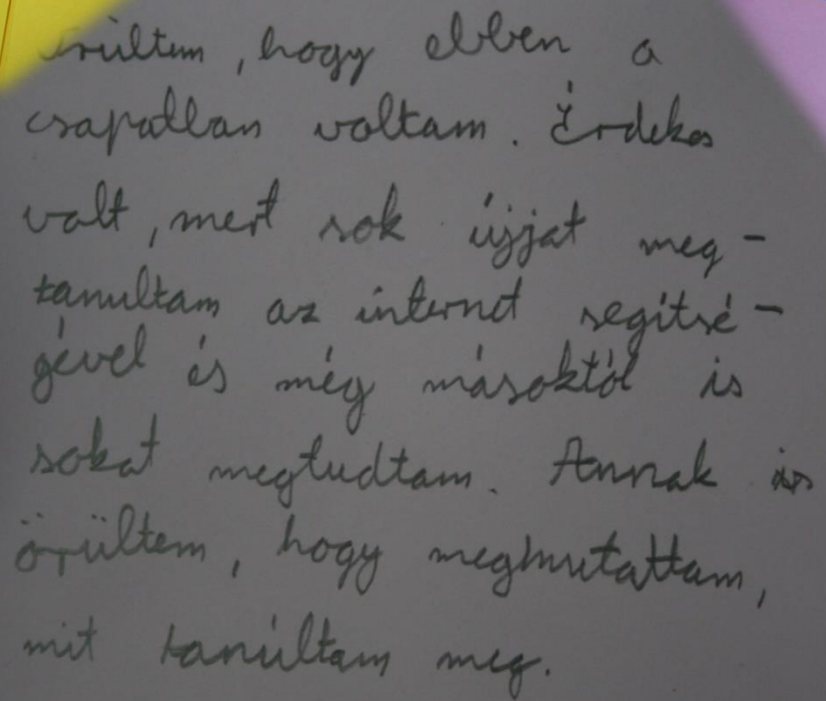 örültem, hogy ebben a
csapatban voltam. Érdekes
volt, mert sok újjat meg-
tanultam az internet segítsé-
gével és még másoktól is
sokat megtudtam. Annak is
örültem, hogy megmutattam,
mit tanúltam meg.